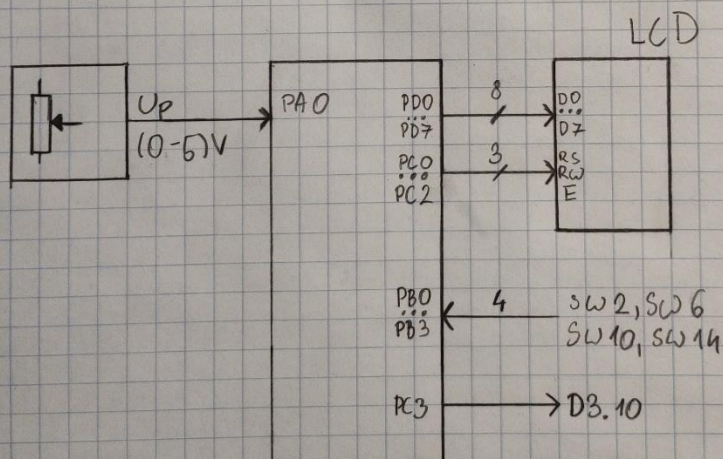 LCD
Up
(0-5)V
PA0
PD0
...
PD7
8
D0
...
D7
PC0
...
PC2
3
RS
RW
E
PB0
...
PB3
4
SW2, SW6
SW10, SW14
PC3
D3.10